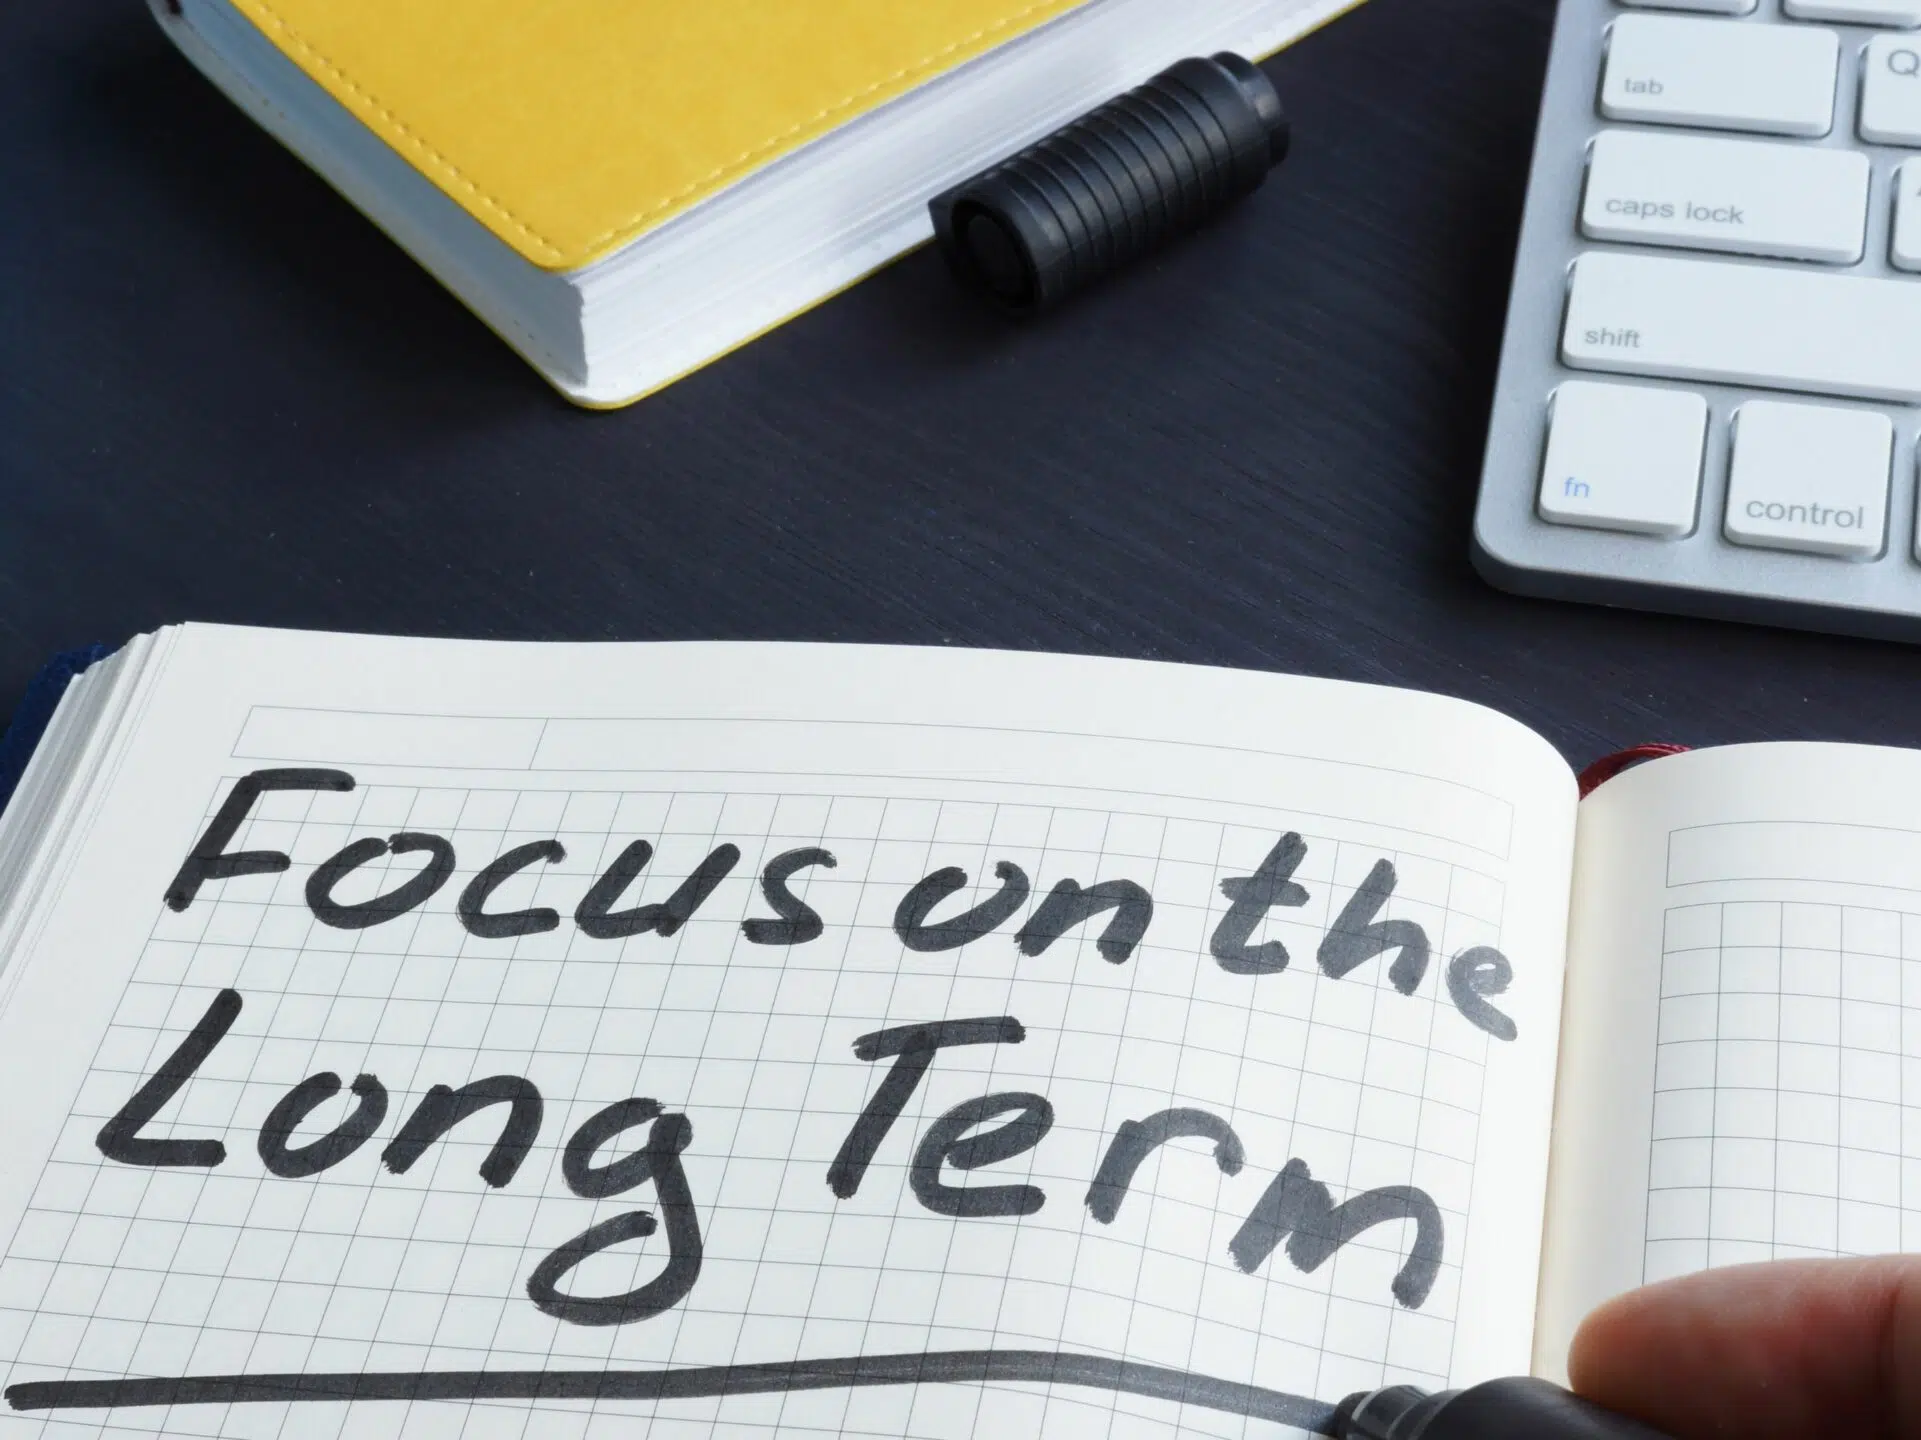 tab
Q
caps lock
shift
fn
control
Focus on the
Long Term